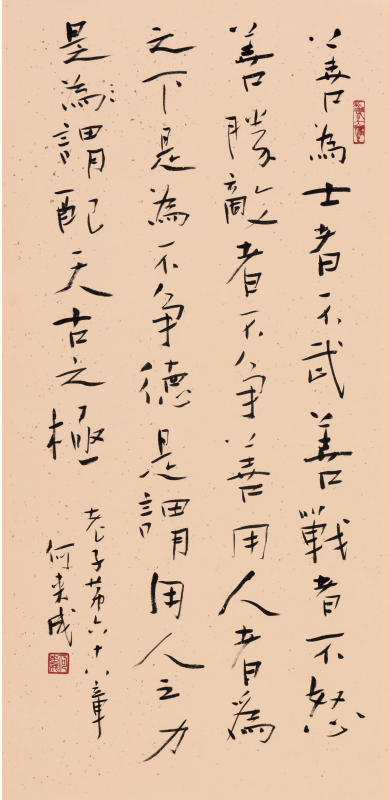 善為士者不武善戰者不怒
善勝敵者不争善用人者為
之下是為不争德是謂用人之力
是為謂配天古之極
老子第六十八章
何来成